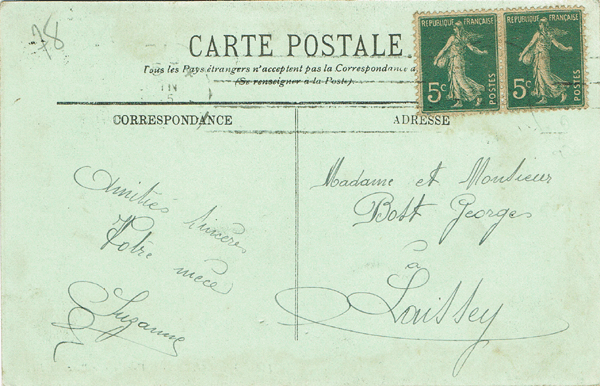 78
CARTE POSTALE
Tous les Pays étrangers n'acceptent pas la Correspondance a
(Se renseigner à la Poste).
REPUBLIQUE FRANÇAISE
5c
POSTES
REPUBLIQUE FRANÇAISE
5c
POSTES
CORRESPONDANCE
ADRESSE
Amitiés sincères
Votre niece
Suzanne
Madame et Monsieur
Bost Georges
à
Laissey